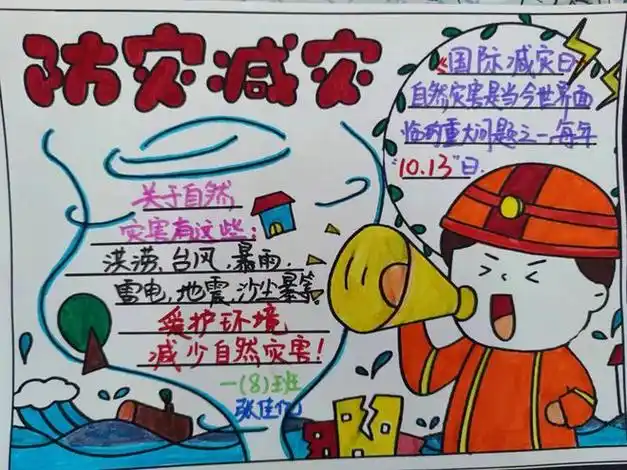 防灾减灾
《国际减灾日
自然灾害是当今世界面
临的重大问题之一,每年
"10.13"日.
关于自然
灾害有这些:
洪涝,台风,暴雨,
雷电,地震,沙尘暴等
爱护环境
减少自然灾害!
一(8)班
张佳